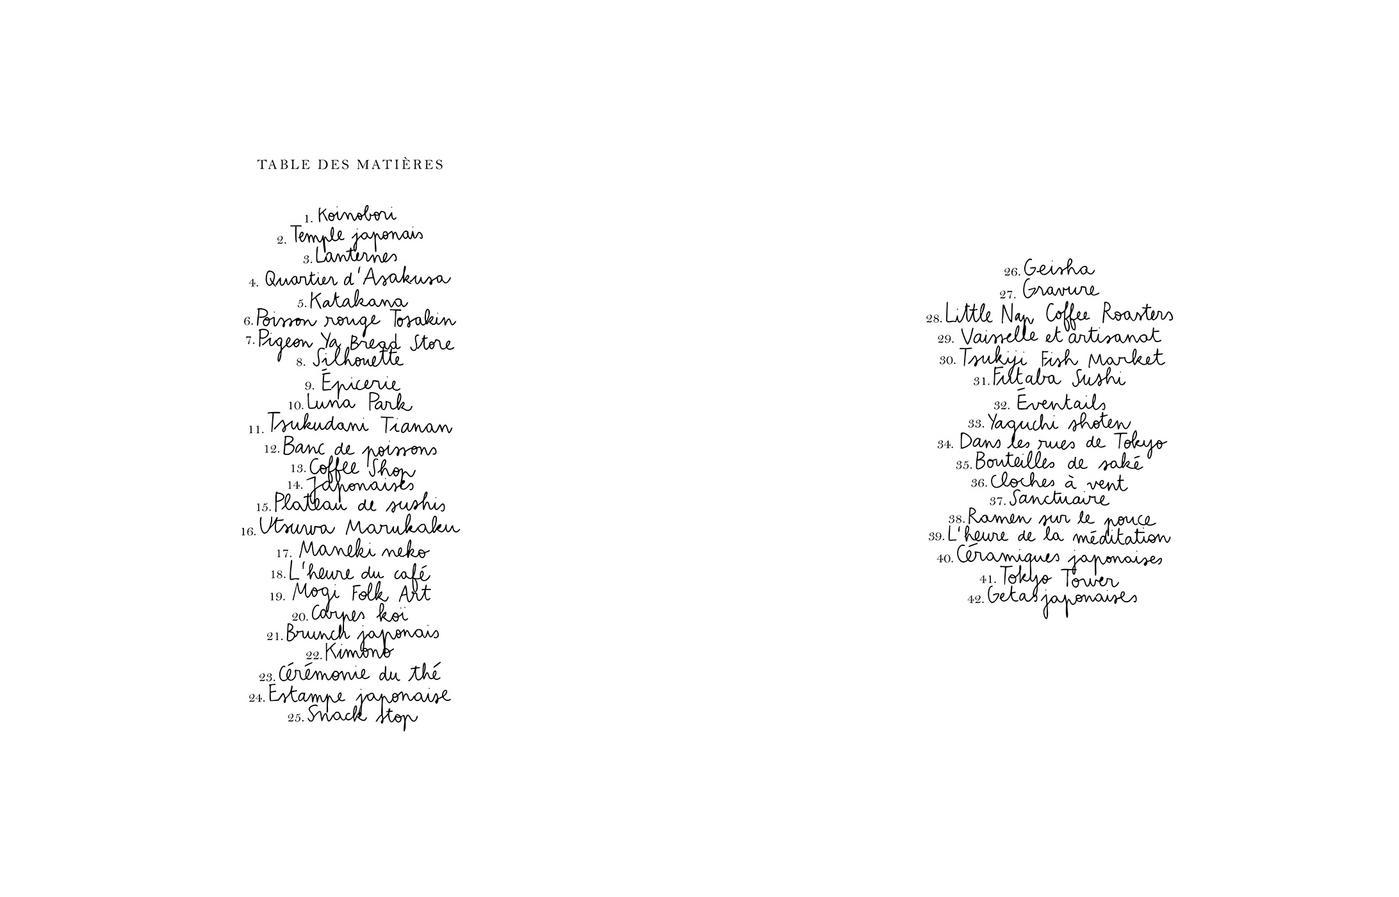 TABLE DES MATIÈRES
1. Koinobori
2. Temple japonais
3. Lanternes
4. Quartier d'Asakusa
5. Katakana
6. Poisson rouge Tosakin
7. Pigeon Ya Bread Store
8. Silhouette
9. Épicerie
10. Luna Park
11. Tsukudani Tianan
12. Banc de poissons
13. Coffee Shop
14. Japonaises
15. Plateau de sushis
16. Utsuwa Marukaku
17. Maneki neko
18. L'heure du café
19. Mogi Folk Art
20. Carpes koï
21. Brunch japonais
22. Kimono
23. Cérémonie du thé
24. Estampe japonaise
25. Snack stop
26. Geisha
27. Gravure
28. Little Nap Coffee Roasters
29. Vaisselle et artisanat
30. Tsukiji Fish Market
31. Futaba Sushi
32. Éventails
33. Yaguchi shoten
34. Dans les rues de Tokyo
35. Bouteilles de saké
36. Cloches à vent
37. Sanctuaire
38. Ramen sur le pouce
39. L'heure de la méditation
40. Céramiques japonaises
41. Tokyo Tower
42. Getas japonaises